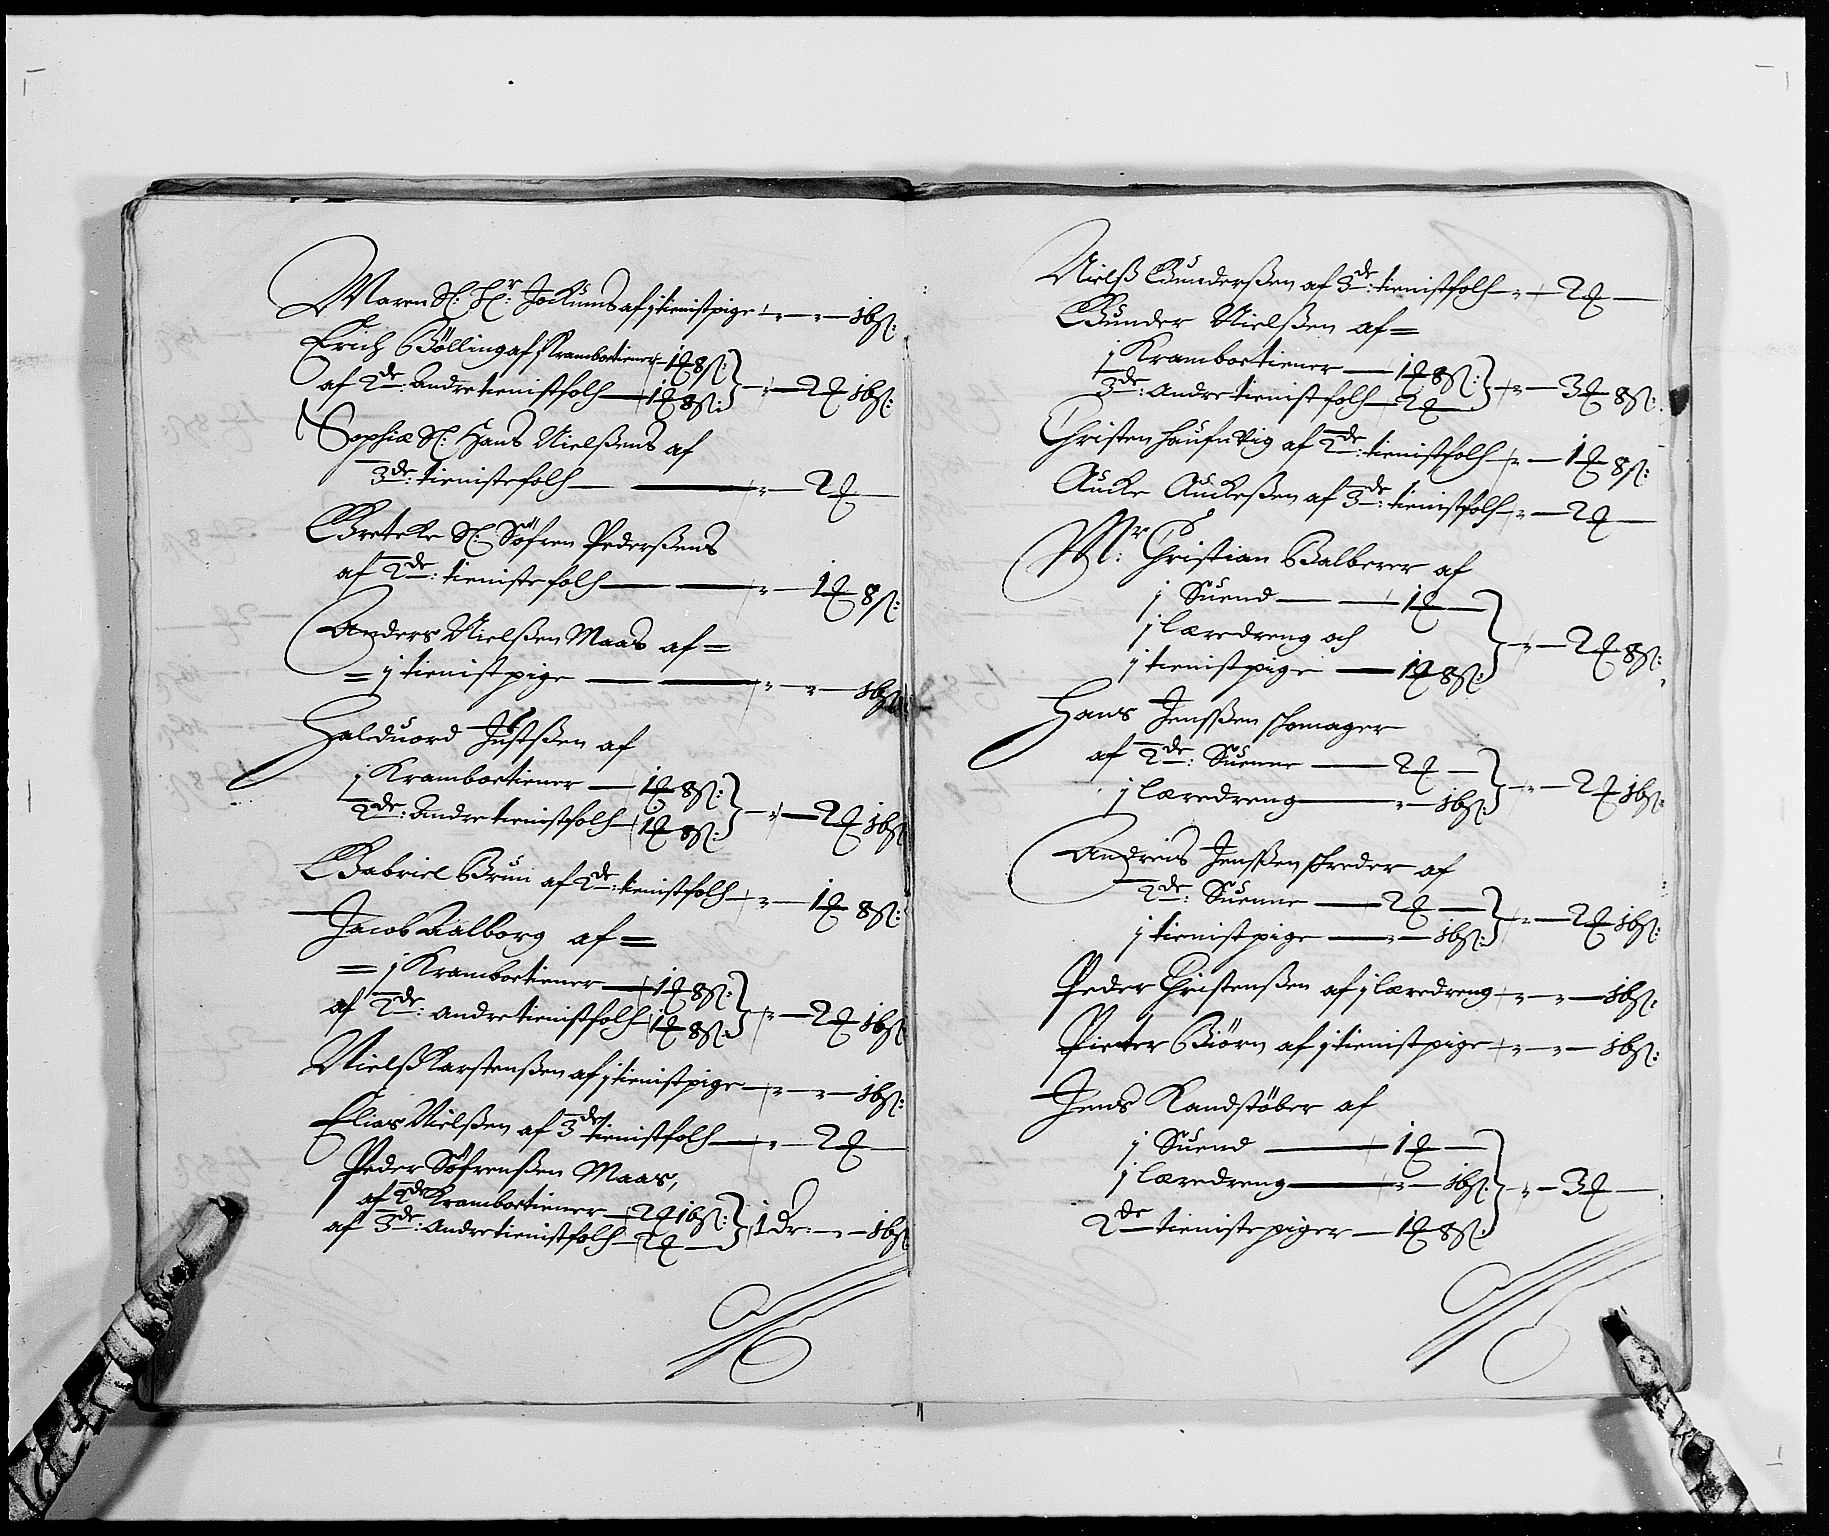 Maren Sl: Hr: Jockums af j tienistpige — „ — „ — 16 ß:
Erich Bölling af j Kramboetiener — 1 ℳ 8 ß:
af 2de: Andre tienistfolch — 1 ℳ 8 ß: } — „ — 2 ℳ 16 ß:
Sophia Sl: Hans Nielßens af
3de: tienistefolch — „ — 2 ℳ —
Greteke Sl: Söfren Pederßens
af 2de: tienistefolch — „ — 1 ℳ 8 ß:
Anders Nielßen Maas af =
= j tienistpige — „ — „ — 16 ß:
Halduord Justßen af
j Kramboetiener — 1 ℳ 8 ß:
2de: Andre tienistfolch — 1 ℳ 8 ß: } — „ — 2 ℳ 16 ß
Gabriel Brun af 2de: tienistfolch — „ — 1 ℳ 8 ß:
Jacob Aalborg af =
= j Kramboetiener — 1 ℳ 8 ß:
af 2de: Andre tienistfolch — 1 ℳ 8 ß: } — „ — 2 ℳ 16 ß
Nielß Karstenßen af j tienistpige — „ — „ — 16 ß:
Elias Nielßen af 3de tienistfolch — „ — 2 ℳ —
Peder Söfrenßen Maas,
af 2de Kramboetiener — 2 ℳ 16 ß:
af 3de: Andre tienistfolch — 2 ℳ — } 1 Dr: — „ — 16 ß
Nielß Gunderßen af 3de: tienistfolch — „ — 2 ℳ —
Gunder Nielßen af =
j Kramboetiener — 1 ℳ 8 ß:
3de: Andre tienistfolch — 2 ℳ — } — „ — 3 ℳ 8 ß:
Christen af 2de: tienistfolch — „ — 1 ℳ 8 ß:
Aucke Auckeßen af 3de: tienistfolch — „ — 2 ℳ —
Mr: Christian Balberer af
j Suend — 1 ℳ —
j læredreng och
j tienistpige — 1 ℳ 8 ß: } — „ — 2 ℳ 8 ß:
Hans Jenßen skomager
af 2de: Suenne — 2 ℳ —
j læredreng — „ — 16 ß: } — „ — 2 ℳ 16 ß:
Andreis Jenßen skreder af
2de: Suenne — 2 ℳ —
j tienistpige — „ — 16 ß: } — „ — 2 ℳ 16 ß:
Peder Christenßen af j læredreng — „ — „ — 16 ß:
Pieter Biörn af j tienistpige — „ — „ — 16 ß:
Jens Kandstöber af
j Suend — 1 ℳ —
j læredreng — „ — 16 ß:
2de tienistepiger — 1 ℳ 8 ß: } — „ — 3 ℳ —